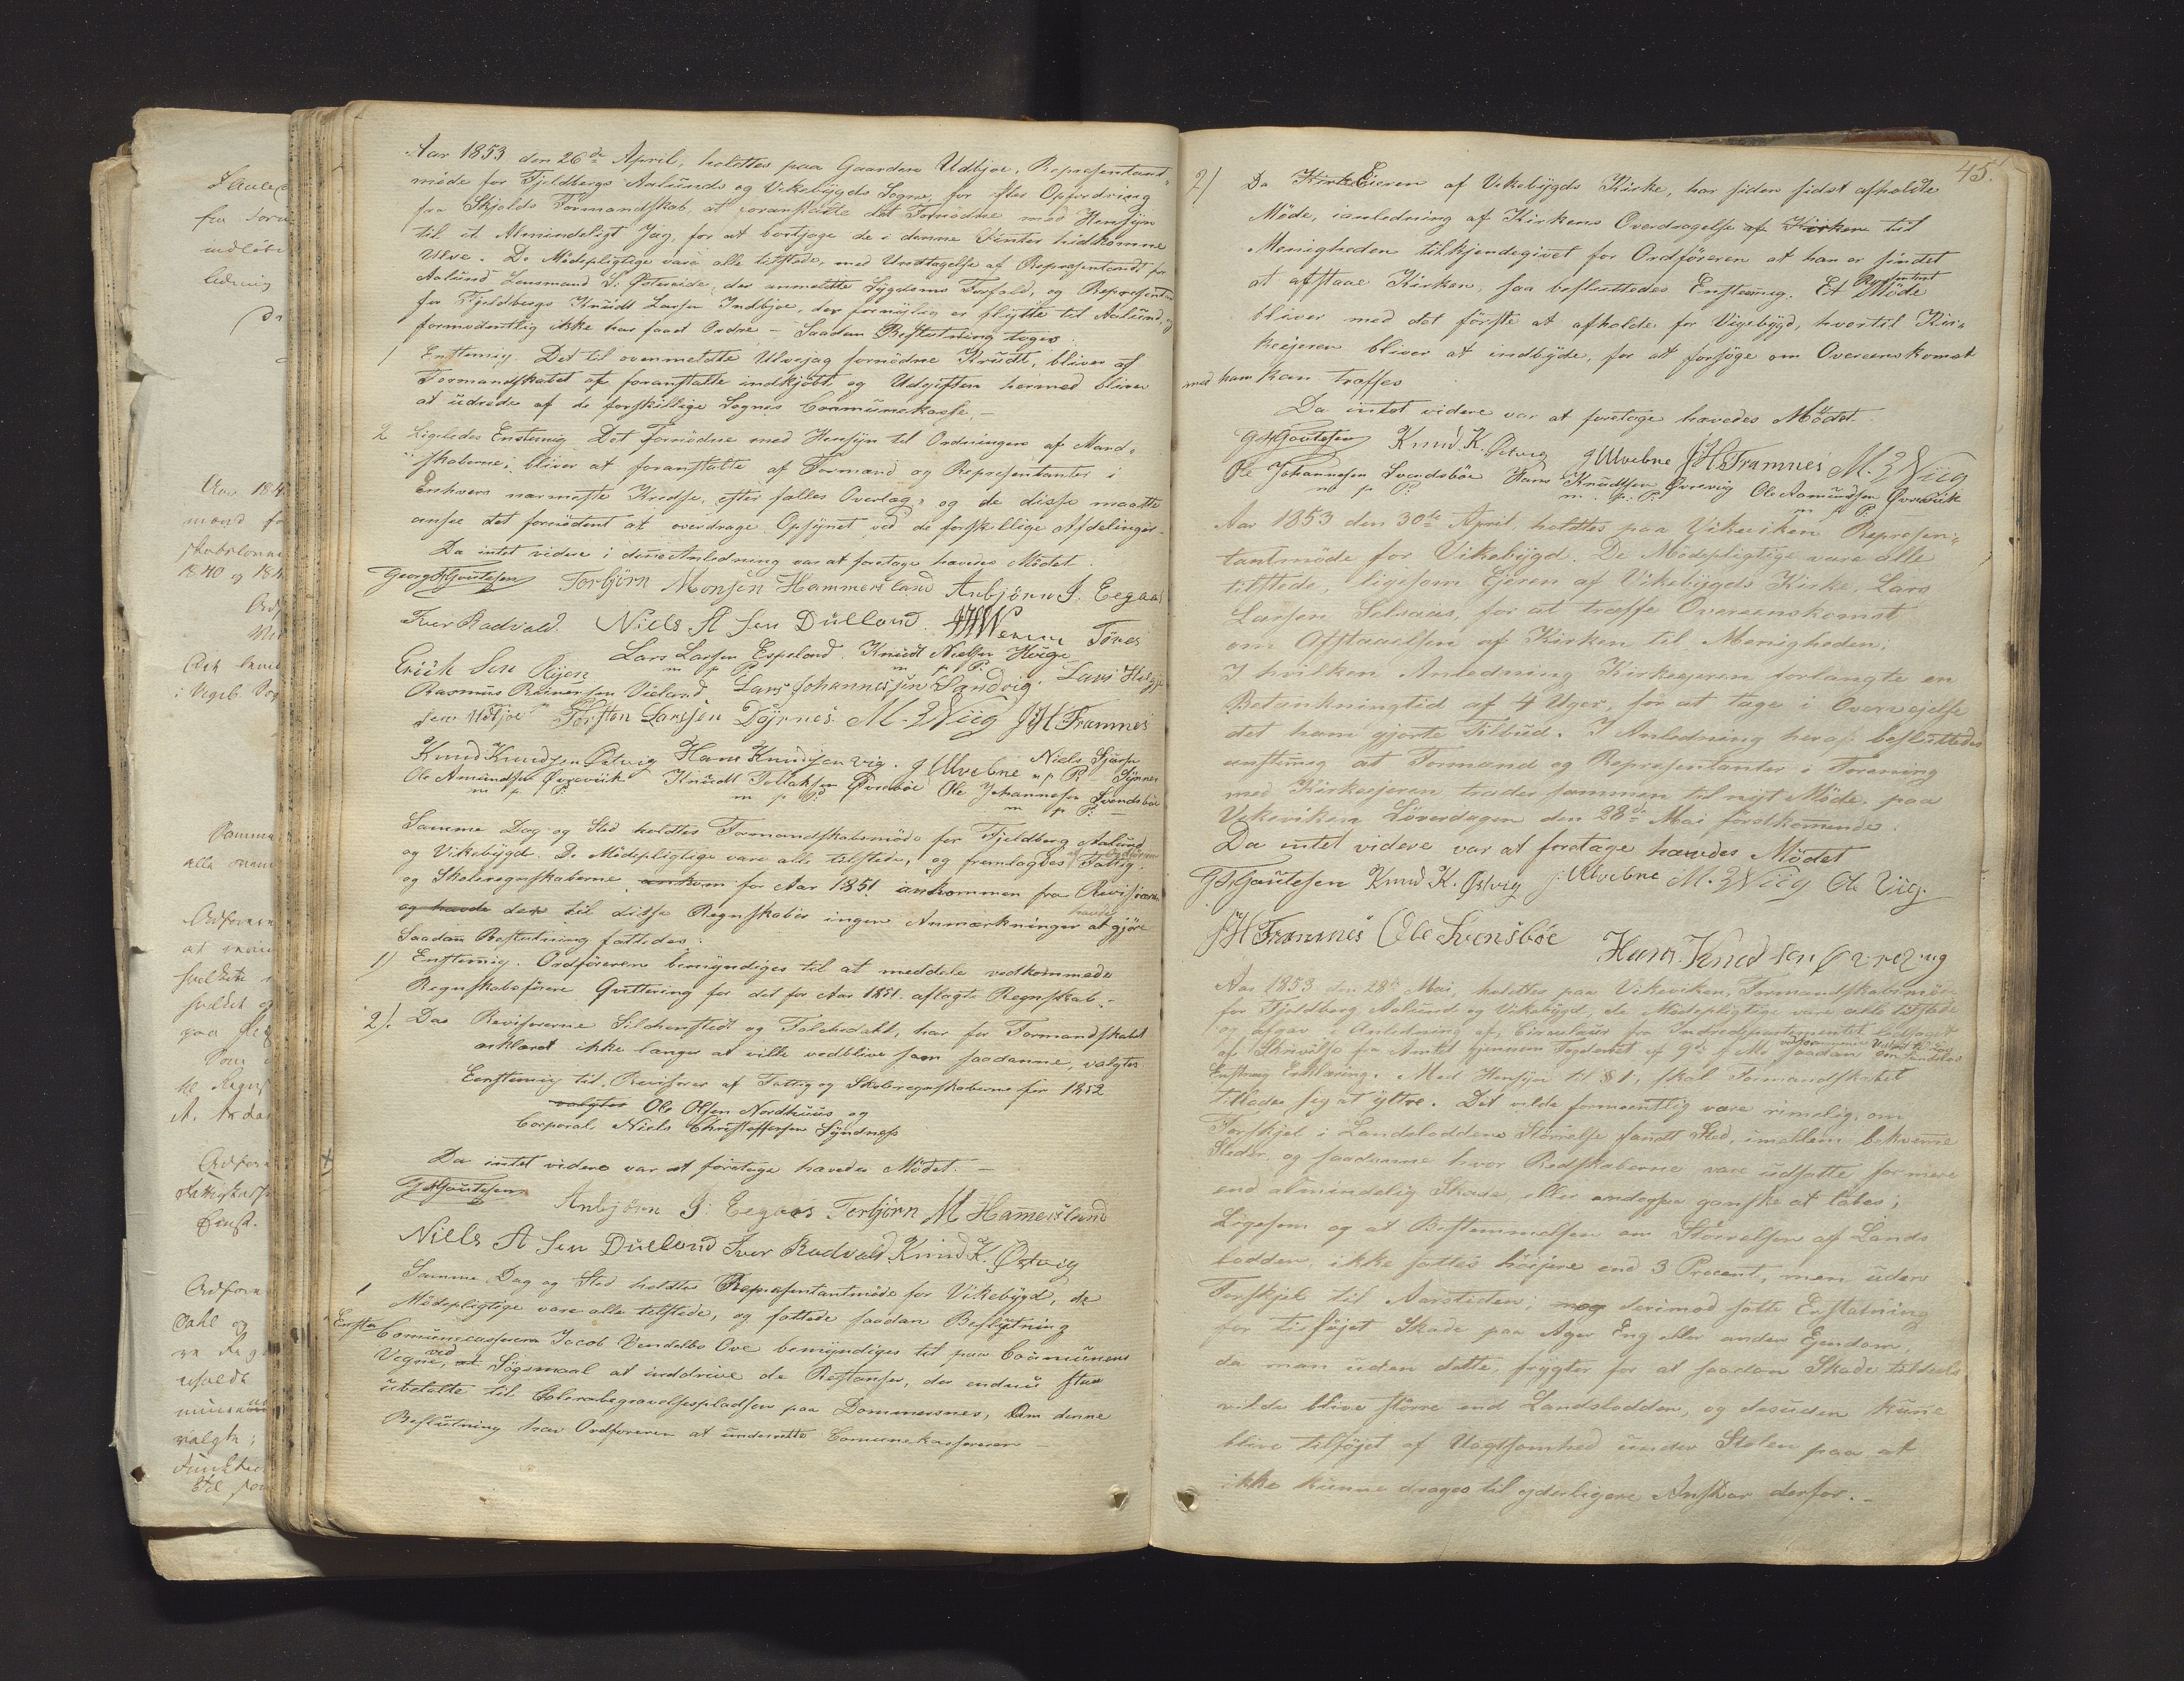 Aar 1853 den 26de April, holdtes paa Gaarden Udbjoe, Repræsentant-
møde for Fjeldbergs Aalunds og Vikebygds Sogne, for efter Opfordring
fra Skjolds Formandskab, at foranstalte det Fornødne med Hensyn
til et Almindeligt Jag, for at bortjage de i denne Vinter hidkomne
Ulve. De Mødepligtige vare alle tilstede, med Undtagelse af Repræsentant for
Aalund Lensmand S. Østereide, der anmeldte Sygdoms Forfald, og Repræsentant
for Fjeldbergs Knudt Larsen Indbjoe, der fornylig er flyttet til Aalund, og
formodentlig ikke har faaet Ordre – Saadan Beslutning toges
1 Enstemig. Det til ovenmeldte Ulvejag fornødne Krudt, bliver af
Formandskabet at foranstalte indkjøbt, og Udgiften hermed bliver
at udrede af de forskillige Sognes Communekasse. –
2 Ligeledes Enstemig Det Fornødne med Hensyn til Ordningen af Mand-
skaberne, bliver at foranstalte af Formænd og Repræsentanter i
Enhvers nærmeste Kredse, efter fælles Overlæg, og de disse maatte
ansee det fornødent at overdrage Opsynet ved de forskkllige Afdelinger.
Da intet videre i denne Anledning var at foretage hævedes Mødet.
Georg Gjoutesen Torbjörn Monsen Hammersland Anbjörn J. Eegaas
Iver Radvald. Niels A Sen Dülland Tönes
Lars Larsen Espeland Knudt Nielsen Houge
m p P m p P.
Erick Sen Rasmus Reinersen Vieland Lars Johannessen Sandvig. Lars Helge
sen Udbjoe Torsten Larssen Döjrnes M. Z Wiig J H Framnes
Knud Knudsen Østvig Hans Knudsen Vig. J Ulvebne Niels
Ole Amundsen Øvrevik Knudt Øvrebøe Ole Johannesen Svendsbøe
m p P. m p P. m p P.
Samme Dag og Sted holdtes Formandskabsmøde for Fjeldberg Aalund
og Vikebygd. De Mødepligtige vare alle tilstede, og fremlagdes af Ordføreren Fattig
og Skoleregnskaberne ankom for Aar 1851 ankommen fra Revisorerne
og havde der til disse Regnskaber ingen Anmærkninger havde at gjøre
Saadan Beslutning fattedes:
1) Enstemig. Ordføreren bemyndiges til at meddele vedkommede
Regnskabsførere Qvittering for det for Aar 1851. aflagte Regnskab. –
2). Da Revisorerne og har for Formandskabet
erklæret ikke længer at ville vedblive som saadanne, valgtes
Eenstemig til Revisorer af Fattig og Skoleregnskaberne for 1852
valgtes Ole Olsen Nordhuus og
Corporal. Niels Christoffersen Syndnæss
Da intet videre var at foretage hævedes Mødet. –
Gjoutesen Anbjörn J: Eegaas Torbjörn M Hamersland
Niells A Sen Dülland Iver Radvald Knud K. Østvig
Samme Dag og Sted holdtes Repræsentantmøde for Vikebygd, de
1 Mødepligtige vare alle tilstede, og fattede saadan Beslutning
Comunecasseren Jacob Vendelbo Ove bemyndiges til paa Communens
Vegne, at ved Søgsmaal at inddrive de Restanser, der endnu staa
ubetalte til Colerabegravelsespladsen paa Dommersnes, Om denne
Beslutning har Ordføreren at underrette Comunekassereren
45.
2/ Da Kirkeeieren af Vikebygds Kirke, har siden sidst afholdte
Møde, ianledning af Kirkens Overdragelse af Kirken til
Menigheden tilkjendegivet for Ordføreren at han er sindet
at afstaae Kirken, saa besluttedes Enstemig. Et Møde
bliver med det første at afholde for Vigebygd, hvortil Kir-
keejeren bliver at indbyde, for at forsøge om Overeenskomst
med ham kan træffes
Da intet videre var at foretage hævedes Mødet.
Gjoutesen Knud K. Østvig J Ulvebne J H Framnes M. Z Wiig
Ole Johannesen Svendsbøe Hans Knudtsen Øvrevig Ole Aamundsen Øvrevik
m p P. m. p. P. m p P.
Aar 1853 den 30te April, holdtes paa Vikeviken Repræsen-
tantmøde for Vikebygd. De Mødepligtige vare alle
tilstede, ligesom Ejeren af Vikebygds Kirke, Lars
Larsen Silsaas, for at træffe Overeenskomst
om Afstaaelsen af Kirken til Menigheden.
I hvilken Anledning Kirkeejeren forlangte en
Betænkningtid af 4 Uger, for at tage i Overvejelse
det ham gjorte Tilbud. I Anledning heraf besluttedes
enstemig at Formænd og Repræsentanter i Forening
med Kirkeejeren træder sammen til nyt Møde, paa
Vekeviken Løverdagen den 28de Mai førstkomende.
Da intet videre var at foretage hævedes Mødet
Gjoutesen Knud K. Østvig J. Ulvebne M. Z Wiig Ole Viig.
J H Framnes Ole Svensbøe Hans Knud sen Øvrevug
Aar 1853 den 28de Mai, holdtes paa Vikeviken, Formandskabsmøde
for Fjeldberg Aalund og Vikebygd, de Mødepligtige vare alle tilstede
og afgav i Anledning af Circulair fra Indredepartementet ledsaget
af Skrivelse fra Amtet gjennem Fogderiet af 9de f M. saadan
Enstemig Erklæring. Med Hensyn til § 1, skal Formandskabet
tillade sig at yttre. Det vilde formeentlig være rimelig, om
Forskjel i Landslodden Størrelse fandt Sted, imellem bekvemme
Steder, og saadanne hvor Redskaberne vare udsatte for mere
end almindelig Skade, eller endogsaa ganske at tabes;
Ligesom og at Bestemmelsen om Størrelsen af Lands
lodden, ikke sattes høiere end 3 Procent, men uden
Forskjel til Aarstiden; derimod satte Erstatning
for tilføjet Skade paa Ager Eng eller anden Ejendom,
da man uden dette, frygter for at saadan Skade tildeels
vilde blive større end Landslodden, og desuden kune
blive tilføjet af Uagtsomhed under Stolen paa at
ikke kunne drages til yderligere Ansvar derfor. –